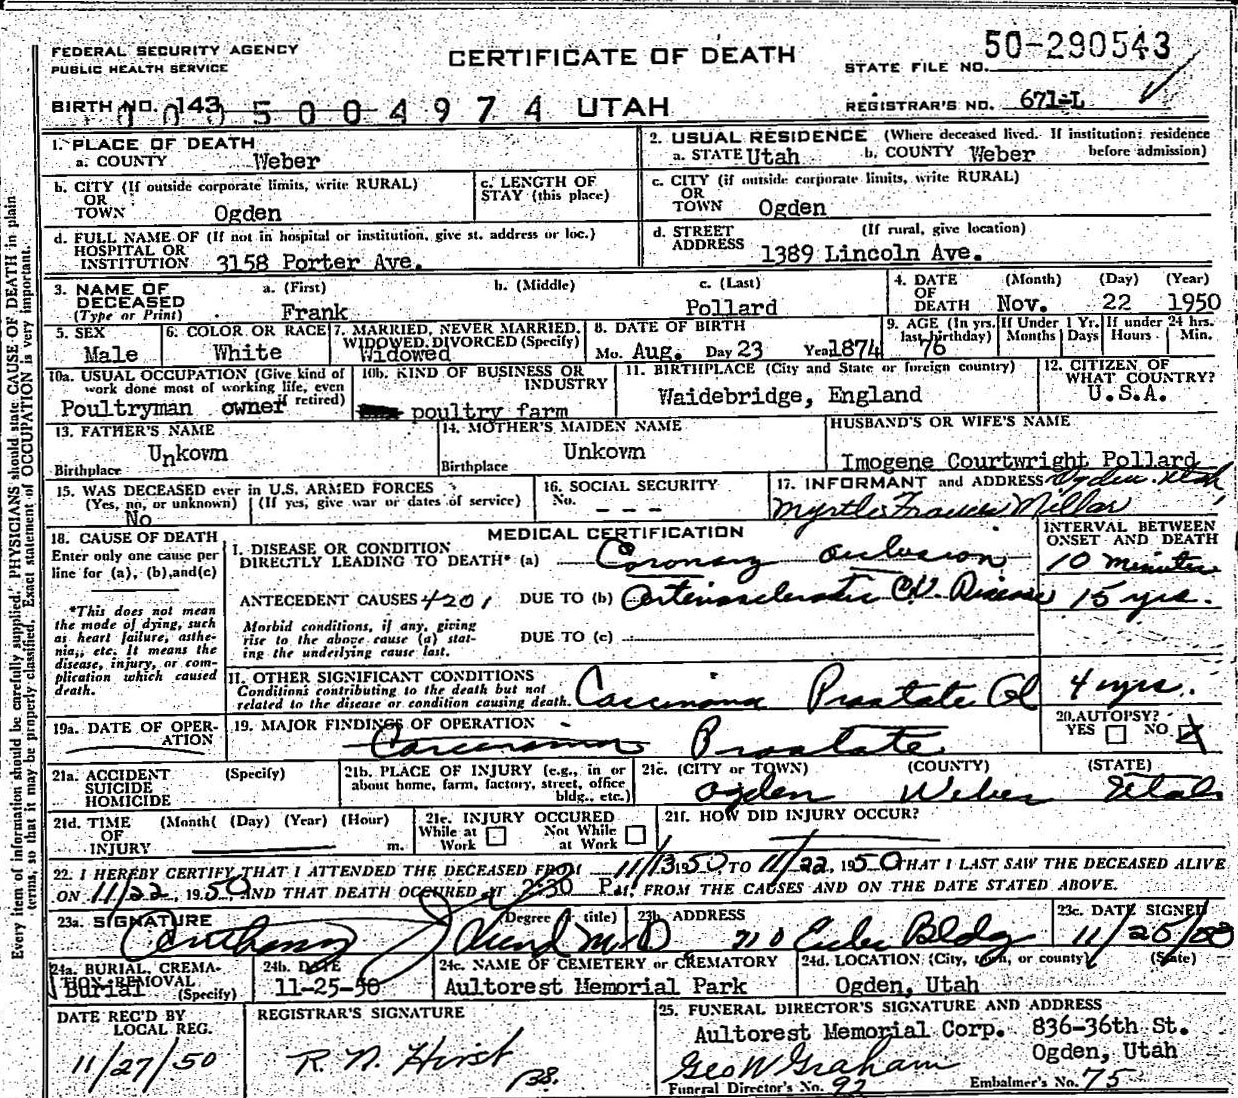 FEDERAL SECURITY AGENCY
PUBLIC HEALTH SERVICE
CERTIFICATE OF DEATH
STATE FILE NO. 50-290543
BIRTH NO. 143
0005004974 UTAH
REGISTRAR'S NO. 671-L
1. PLACE OF DEATH
a. COUNTY Weber
2. USUAL RESIDENCE (Where deceased lived. If institution: residence before admission)
a. STATE Utah b. COUNTY Weber
b. CITY (If outside corporate limits, write RURAL)
OR
TOWN Ogden
c. LENGTH OF
STAY (this place)
c. CITY (if outside corporate limits, write RURAL)
OR
TOWN Ogden
d. FULL NAME OF (If not in hospital or institution, give st. address or loc.)
HOSPITAL OR
INSTITUTION 3158 Porter Ave.
d. STREET (If rural, give location)
ADDRESS 1389 Lincoln Ave.
3. NAME OF
DECEASED
(Type or Print)
a. (First) b. (Middle) c. (Last)
Frank Pollard
4. DATE
OF
DEATH
(Month) (Day) (Year)
Nov. 22 1950
5. SEX
Male
6. COLOR OR RACE
White
7. MARRIED, NEVER MARRIED,
WIDOWED, DIVORCED (Specify)
Widowed
8. DATE OF BIRTH
Mo. Aug. Day 23 Year 1874
9. AGE (In yrs.
last birthday)
76
If Under 1 Yr.
Months Days
If under 24 hrs.
Hours Min.
10a. USUAL OCCUPATION (Give kind of
work done most of working life, even
if retired)
Poultryman owner
10b. KIND OF BUSINESS OR
INDUSTRY
poultry farm
11. BIRTHPLACE (City and State or foreign country)
Waidebridge, England
12. CITIZEN OF
WHAT COUNTRY?
U.S.A.
13. FATHER'S NAME
Unkovm
Birthplace
14. MOTHER'S MAIDEN NAME
Unkovm
Birthplace
HUSBAND'S OR WIFE'S NAME
Imogene Courtwright Pollard
15. WAS DECEASED ever in U.S. ARMED FORCES
(Yes, no, or unknown) (If yes, give war or dates of service)
No
16. SOCIAL SECURITY
No. - - -
17. INFORMANT and ADDRESS Ogden, Utah
Myrtle Frances Millar
18. CAUSE OF DEATH
Enter only one cause per
line for (a), (b), and (c)
*This does not mean
the mode of dying, such
as heart failure, asthe-
nia, etc. It means the
disease, injury, or com-
plication which caused
death.
MEDICAL CERTIFICATION
INTERVAL BETWEEN
ONSET AND DEATH
I. DISEASE OR CONDITION
DIRECTLY LEADING TO DEATH* (a) Coronary occlusion 10 minutes
ANTECEDENT CAUSES 4201 DUE TO (b) Arteriosclerotic C.V. Disease 15 yrs.
Morbid conditions, if any, giving
rise to the above cause (a) stat-
ing the underlying cause last.
DUE TO (c)
II. OTHER SIGNIFICANT CONDITIONS
Conditions contributing to the death but not
related to the disease or condition causing death.
Carcinoma Prostate Gl 4 yrs.
19a. DATE OF OPER-
ATION
19. MAJOR FINDINGS OF OPERATION
Carcinoma Prostate
20. AUTOPSY?
YES NO X
21a. ACCIDENT (Specify)
SUICIDE
HOMICIDE
21b. PLACE OF INJURY (e.g., in or
about home, farm, factory, street, office
bldg., etc.)
21c. (CITY or TOWN) (COUNTY) (STATE)
Ogden Weber Utah
21d. TIME (Month) (Day) (Year) (Hour)
OF
INJURY m.
21e. INJURY OCCURED
While at Work Not While at Work
21f. HOW DID INJURY OCCUR?
22. I HEREBY CERTIFY THAT I ATTENDED THE DECEASED FROM 11/13 1950 TO 11/22, 1950 THAT I LAST SAW THE DECEASED ALIVE
ON 11/22, 1950, AND THAT DEATH OCCURED AT 2:30 P.M. FROM THE CAUSES AND ON THE DATE STATED ABOVE.
23a. SIGNATURE (Degree or title)
Anthony J Lund M.D
23b. ADDRESS
710 Eccles Bldg
23c. DATE SIGNED
24a. BURIAL, CREMA-
TION, REMOVAL
(Specify)
Burial
24b. DATE
11-25-50
24c. NAME OF CEMETERY or CREMATORY
Aultorest Memorial Park
24d. LOCATION (City, town, or county) (State)
Ogden, Utah
DATE REC'D BY
LOCAL REG.
11/27/50
REGISTRAR'S SIGNATURE
R. N. Hirst
25. FUNERAL DIRECTOR'S SIGNATURE AND ADDRESS
Aultorest Memorial Corp. 836-36th St.
Ogden, Utah
Geo W Graham
Funeral Director's No. 92 Embalmer's No. 75
Every item of information should be carefully supplied. PHYSICIANS should state CAUSE OF DEATH in plain
terms, so that it may be properly classified. Exact statement of OCCUPATION is very important.